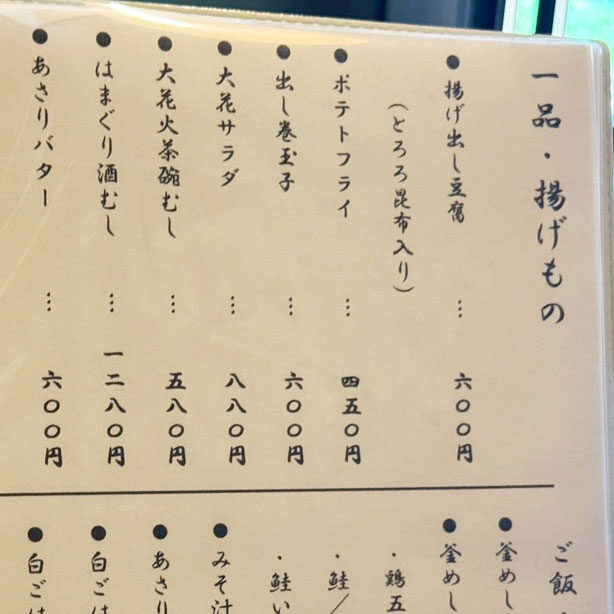 一品・揚げもの
●揚げ出し豆腐…六〇〇円
（とろろ昆布入り）
●ポテトフライ…四五〇円
●出し巻玉子…六〇〇円
●大花サラダ…八八〇円
●大花火茶碗むし…五八〇円
●はまぐり酒むし…一二八〇円
●あさりバター…六〇〇円
ご飯
●釜めし
●釜めし
・鶏五
・鮭／
・鮭い
●みそ汁
●あさり
●白ごは
●白ごは